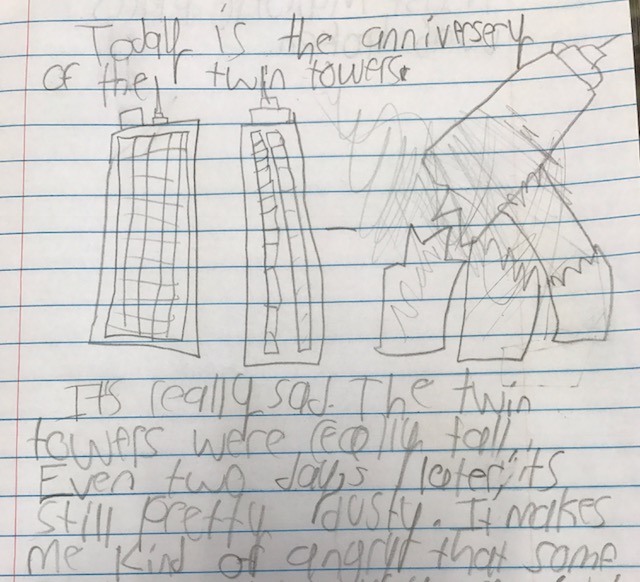 Today is the anniversery
of the twin towers.
It's really sad. The twin
towers were really tall.
Even two days later, its
still pretty dusty. It makes
me kind of angry that some